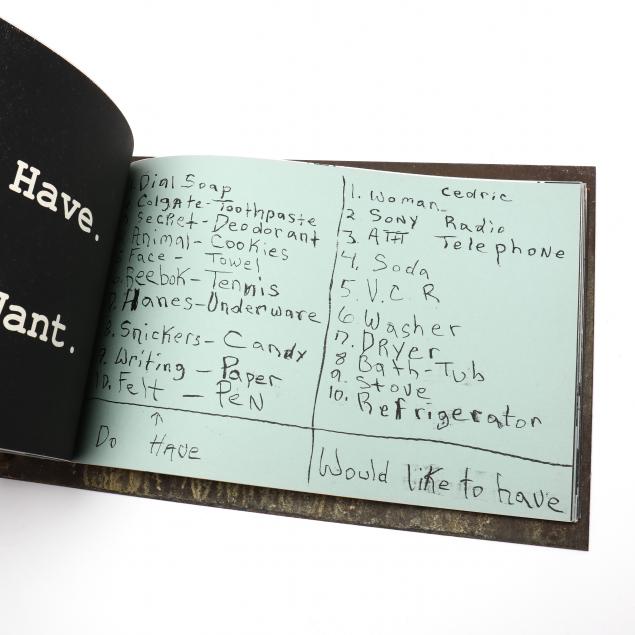 Have.
Want.
Dial Soap
Colgate-Toothpaste
Secret-Deodorant
Animal-Cookies
Face - Towel
Reebok-Tennis
7. Hanes-Underware
8. Snickers-Candy
9. Writing - Paper
10. Felt - PeN
↑
Do HAVE
Cedric
1. Woman
2 SoNy Radio
3. ATT TelephoNe
4. Soda
5. V.C.R
6 Washer
7. DRyer
8 Bath-Tub
9. Stove
10. Refrigerator
Would like to have